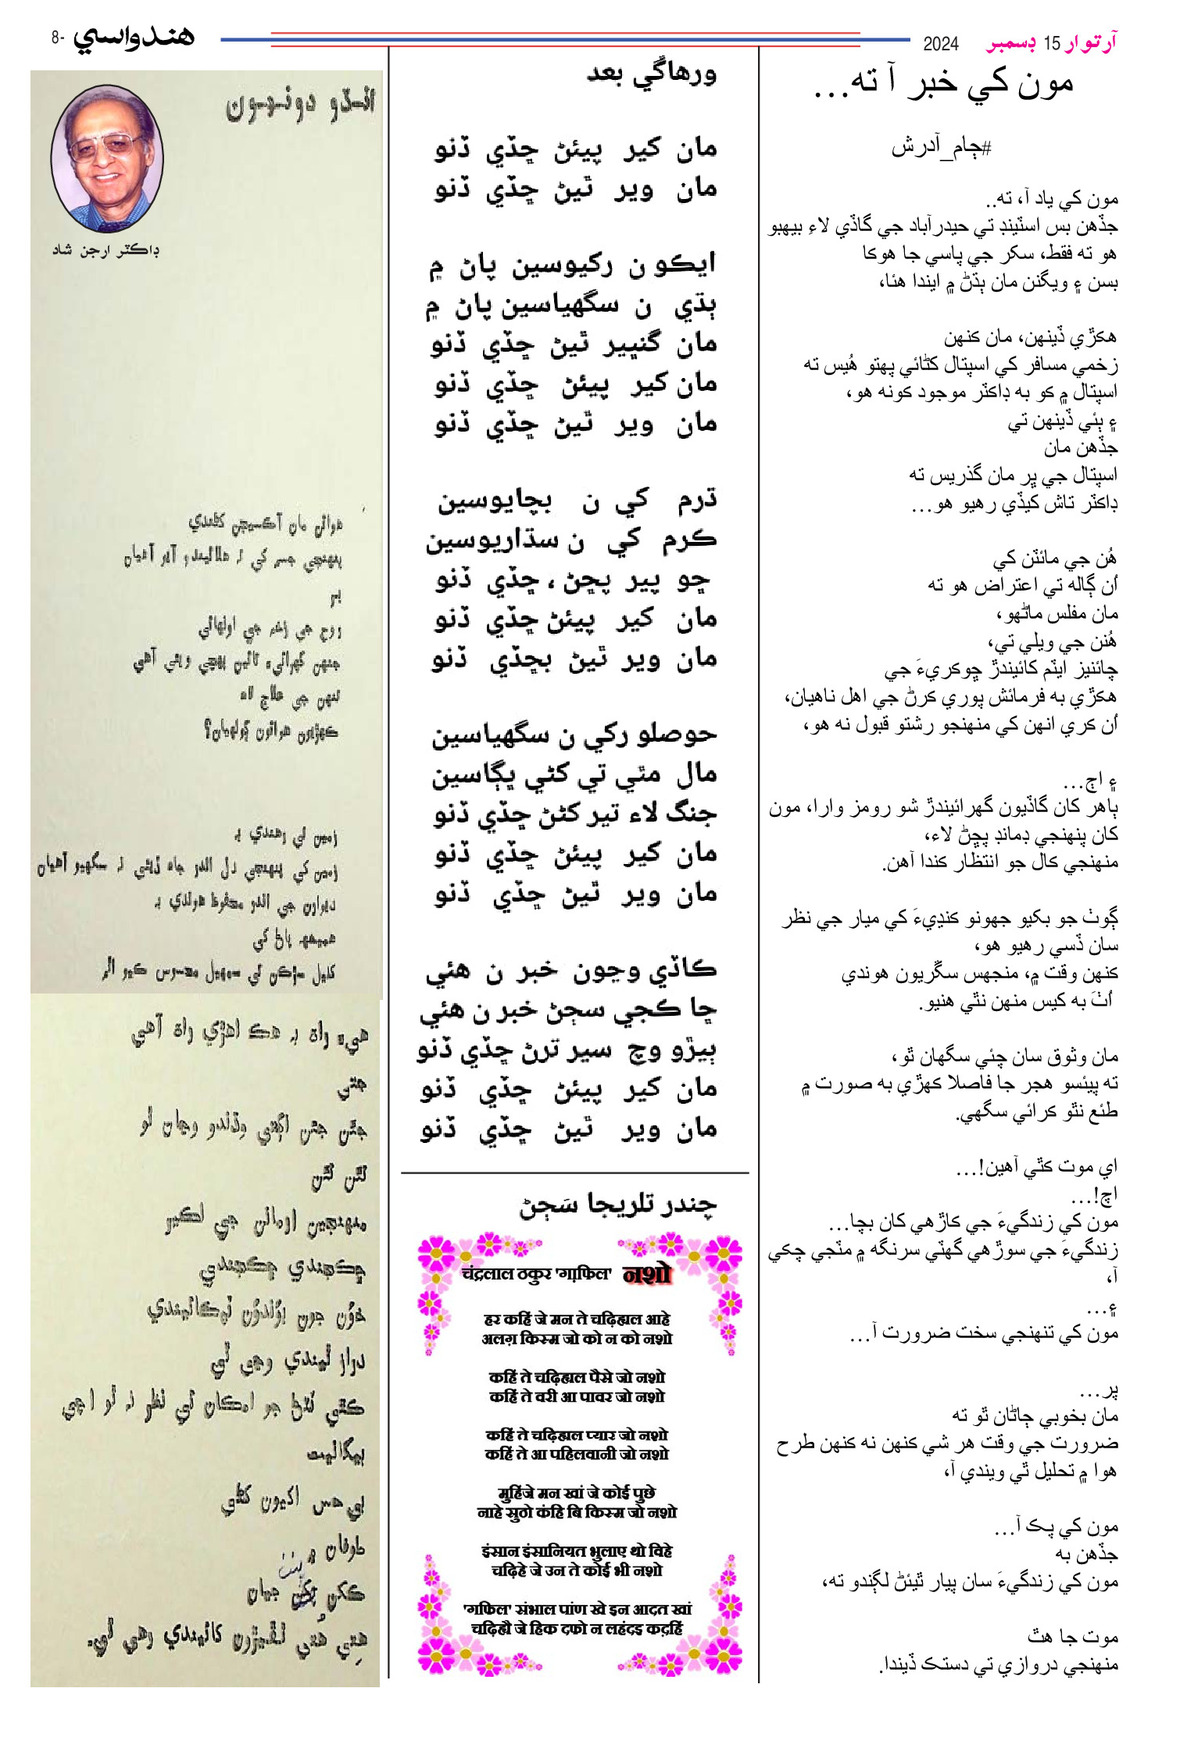 آرتوار 15 ڊسمبر 2024
هندواسي
8-
مون کي خبر آ ته...
#ڄام_آدرش
مون کي ياد آ، ته..
جڏهن بس اسٽينڊ تي حيدرآباد جي گاڏي لاءِ بيهبو
هو ته فقط، سکر جي پاسي جا هوڪا
بسن ۽ ويگنن مان ٻڌڻ ۾ ايندا هئا،
هڪڙي ڏينهن، مان ڪنهن
زخمي مسافر کي اسپتال کڻائي پهتو هُيس ته
اسپتال ۾ ڪو به ڊاڪٽر موجود ڪونه هو،
۽ ٻئي ڏينهن تي
جڏهن مان
اسپتال جي ڀر مان گذريس ته
ڊاڪٽر تاش کيڏي رهيو هو...
هُن جي مائٽن کي
اُن ڳالهه تي اعتراض هو ته
مان مفلس ماڻهو،
هُنن جي ويلي تي،
چائنيز ايٽم کائيندڙ ڇوڪريءَ جي
هڪڙي به فرمائش پوري ڪرڻ جي اهل ناهيان،
اُن ڪري انهن کي منهنجو رشتو قبول نه هو،
۽ اڄ...
ٻاهر کان گاڏيون گهرائيندڙ شو رومز وارا، مون
کان پنهنجي ڊمانڊ پڇڻ لاءِ،
منهنجي ڪال جو انتظار ڪندا آهن.
ڳوٺ جو بکيو جهونو کنڊيءَ کي ميار جي نظر
سان ڏسي رهيو هو،
ڪنهن وقت ۾، منجهس سڱريون هوندي
اُٺَ به کيس منهن نٿي هنيو.
مان وثوق سان چئي سگهان ٿو،
ته پيئسو هجر جا فاصلا ڪهڙي به صورت ۾
طئع نٿو ڪرائي سگهي.
اي موت ڪٿي آهين!...
اچ!...
مون کي زندگيءَ جي کاڙهي کان بچا...
زندگيءَ جي سوڙهي گهٽي سرنگهه ۾ مٽجي چڪي
آ،
۽...
مون کي تنهنجي سخت ضرورت آ...
پر...
مان بخوبي ڄاڻان ٿو ته
ضرورت جي وقت هر شي ڪنهن نه ڪنهن طرح
هوا ۾ تحليل ٿي ويندي آ،
مون کي پڪ آ...
جڏهن به
مون کي زندگيءَ سان پيار ٿيئڻ لڳندو ته،
موت جا هٿ
منهنجي دروازي تي دستڪ ڏيندا.
ورهاڱي بعد
مان کير پيئڻ ڇڏي ڏنو
مان وير ٿيڻ ڇڏي ڏنو
ايڪو ن رکيوسين پاڻ ۾
ٻڌي ن سگهياسين پاڻ ۾
مان گنڀير ٿيڻ ڇڏي ڏنو
مان کير پيئڻ ڇڏي ڏنو
مان وير ٿيڻ ڇڏي ڏنو
ڌرم کي ن بچايوسين
ڪرم کي ن سڌاريوسين
ڇو پير پڇڻ، ڇڏي ڏنو
مان کير پيئڻ ڇڏي ڏنو
مان وير ٿيڻ بڇڏي ڏنو
حوصلو رکي ن سگهياسين
مال مٿي تي کڻي ڀڳاسين
جنگ لاءِ تير کڻڻ ڇڏي ڏنو
مان کير پيئڻ ڇڏي ڏنو
مان وير ٿيڻ ڇڏي ڏنو
ڪاڏي وڃون خبر ن هئي
ڇا ڪجي سڄڻ خبر ن هئي
ٻيڙو وچ سير ترڻ ڇڏي ڏنو
مان کير پيئڻ ڇڏي ڏنو
مان وير ٿيڻ ڇڏي ڏنو
چندر تلريجا سَڄڻ
चंद्रलाल ठकुर 'गा़फिल' नशो
हर कहिं जे मन ते चढ़िह्यल आहे
अलग़ किस्म जो को न को नशो
कहिं ते चढ़िह्यल पैसे जो नशो
कहिं ते वरी आ पावर जो नशो
कहिं ते चढ़िह्यल प्यार जो नशो
कहिं ते आ पहिलवानी जो नशो
मुहिंजे मन खां जे कोई पुछे
नाहे सुठो कंहि बि किस्म जो नशो
इंसान इंसानियत भुलाए थो विहे
चढ़िहे जे उन ते कोई भी नशो
'गफिल' संभाल पांण खे इन आदत खां
चढ़िहौ जे हिक दफो न लहंदइ कद़हिं
انڌو دونهون
ڊاڪٽر ارجن شاد
هوائن مان آڪسيجن کڻندي
پنهنجي جسم کي ته هلائيندو آيو آهيان
پر
روح جي زخم جي اونهائي
جنهن گهرائيءَ تائين پهچي ويئي آهي
تنهن جي علاج لاءِ
ڪهڙيون هوائون ڳولهيان؟
زمين تي رهندي به
زمين کي پنهنجي دل اندر جاءِ ڏيئي نه سگهيو آهيان
ديوارن جي اندر محفوظ هوندي به
هميشهه پاڻ کي
کليل سڙڪن تي محسوس ڪيو اٿم
هيءَ راهه به هڪ اهڙي راهه آهي
جتي
جتن جتن اڳتي وڌندو وڃان ٿو
تتن تتن
منهنجين اومانن جي لڪير
ڇڪبي ڇڪبي
خون جون بوندون ٽپڪائيندي
دراز ٿيندي وڃي ٿي
ڪٿي ٽٽڻ جو امڪان ئي نظر نه ٿو اچي
بي حس اکيون کڻي
طوفان ۾
ڪکن پنن جيان
هِتي هُتي ٿڦيڙون کائيندي رهي ٿي.